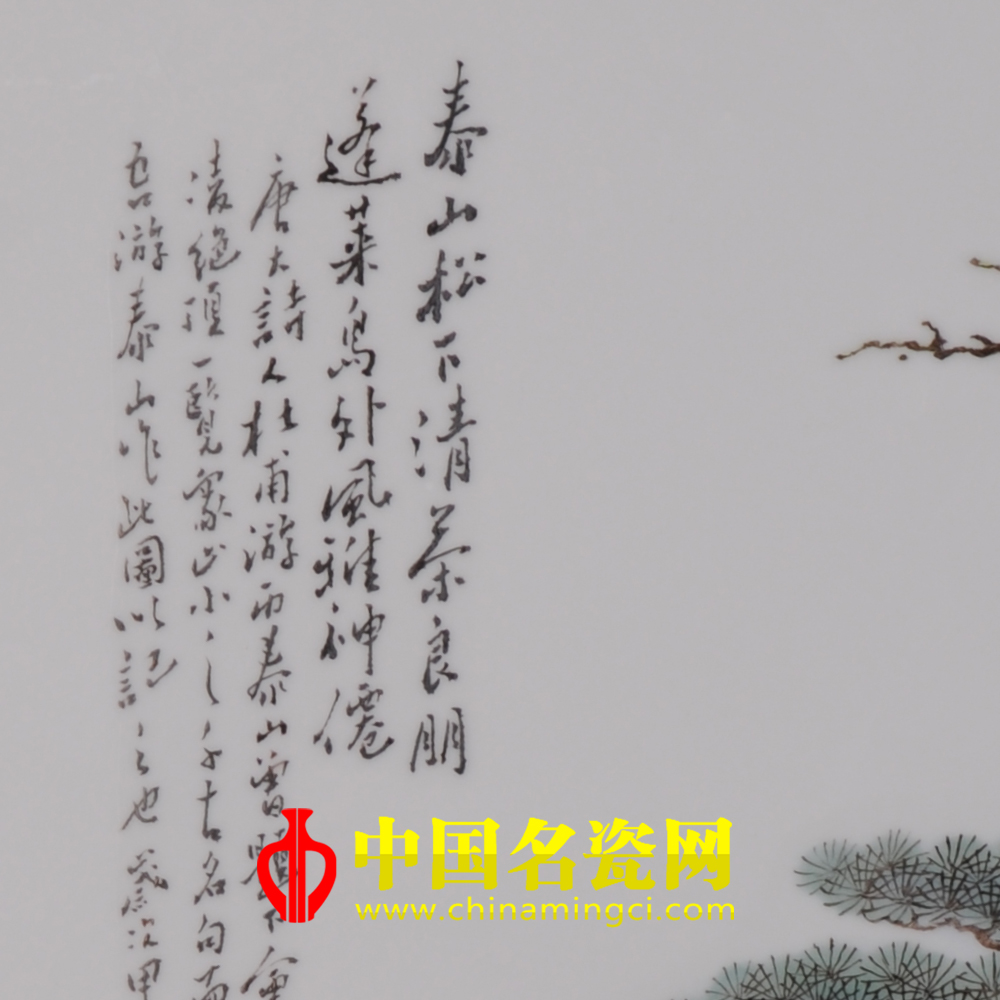 泰山松下清茶良朋
蓬莱島外風雅神僊
唐大詩人杜甫游而泰山曾賦下會
凌絶頂一覽衆山小之千古名句而
吾游泰山作此圖以記之也歲次甲
中国名瓷网
www.chinamingci.com